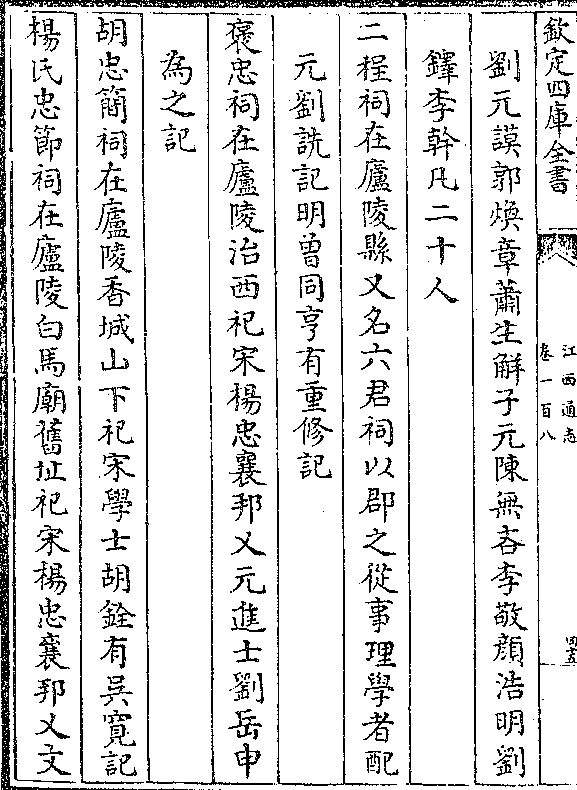 欽定四庫全書
江西通志
卷一百八
四五
劉元謨郭煥章蕭生解子元陳無吝李敬顔浩明劉
鐸李幹凡二十人
二程祠在廬陵縣又名六君祠以郡之從事理學者配
元劉詵記明曾同亨有重修記
褒忠祠在廬陵治西祀宋楊忠襄邦乂元進士劉岳申
為之記
胡忠簡祠在廬陵香城山下祀宋學士胡銓有吳寛記
楊氏忠節祠在廬陵白馬廟舊址祀宋楊忠襄邦乂文